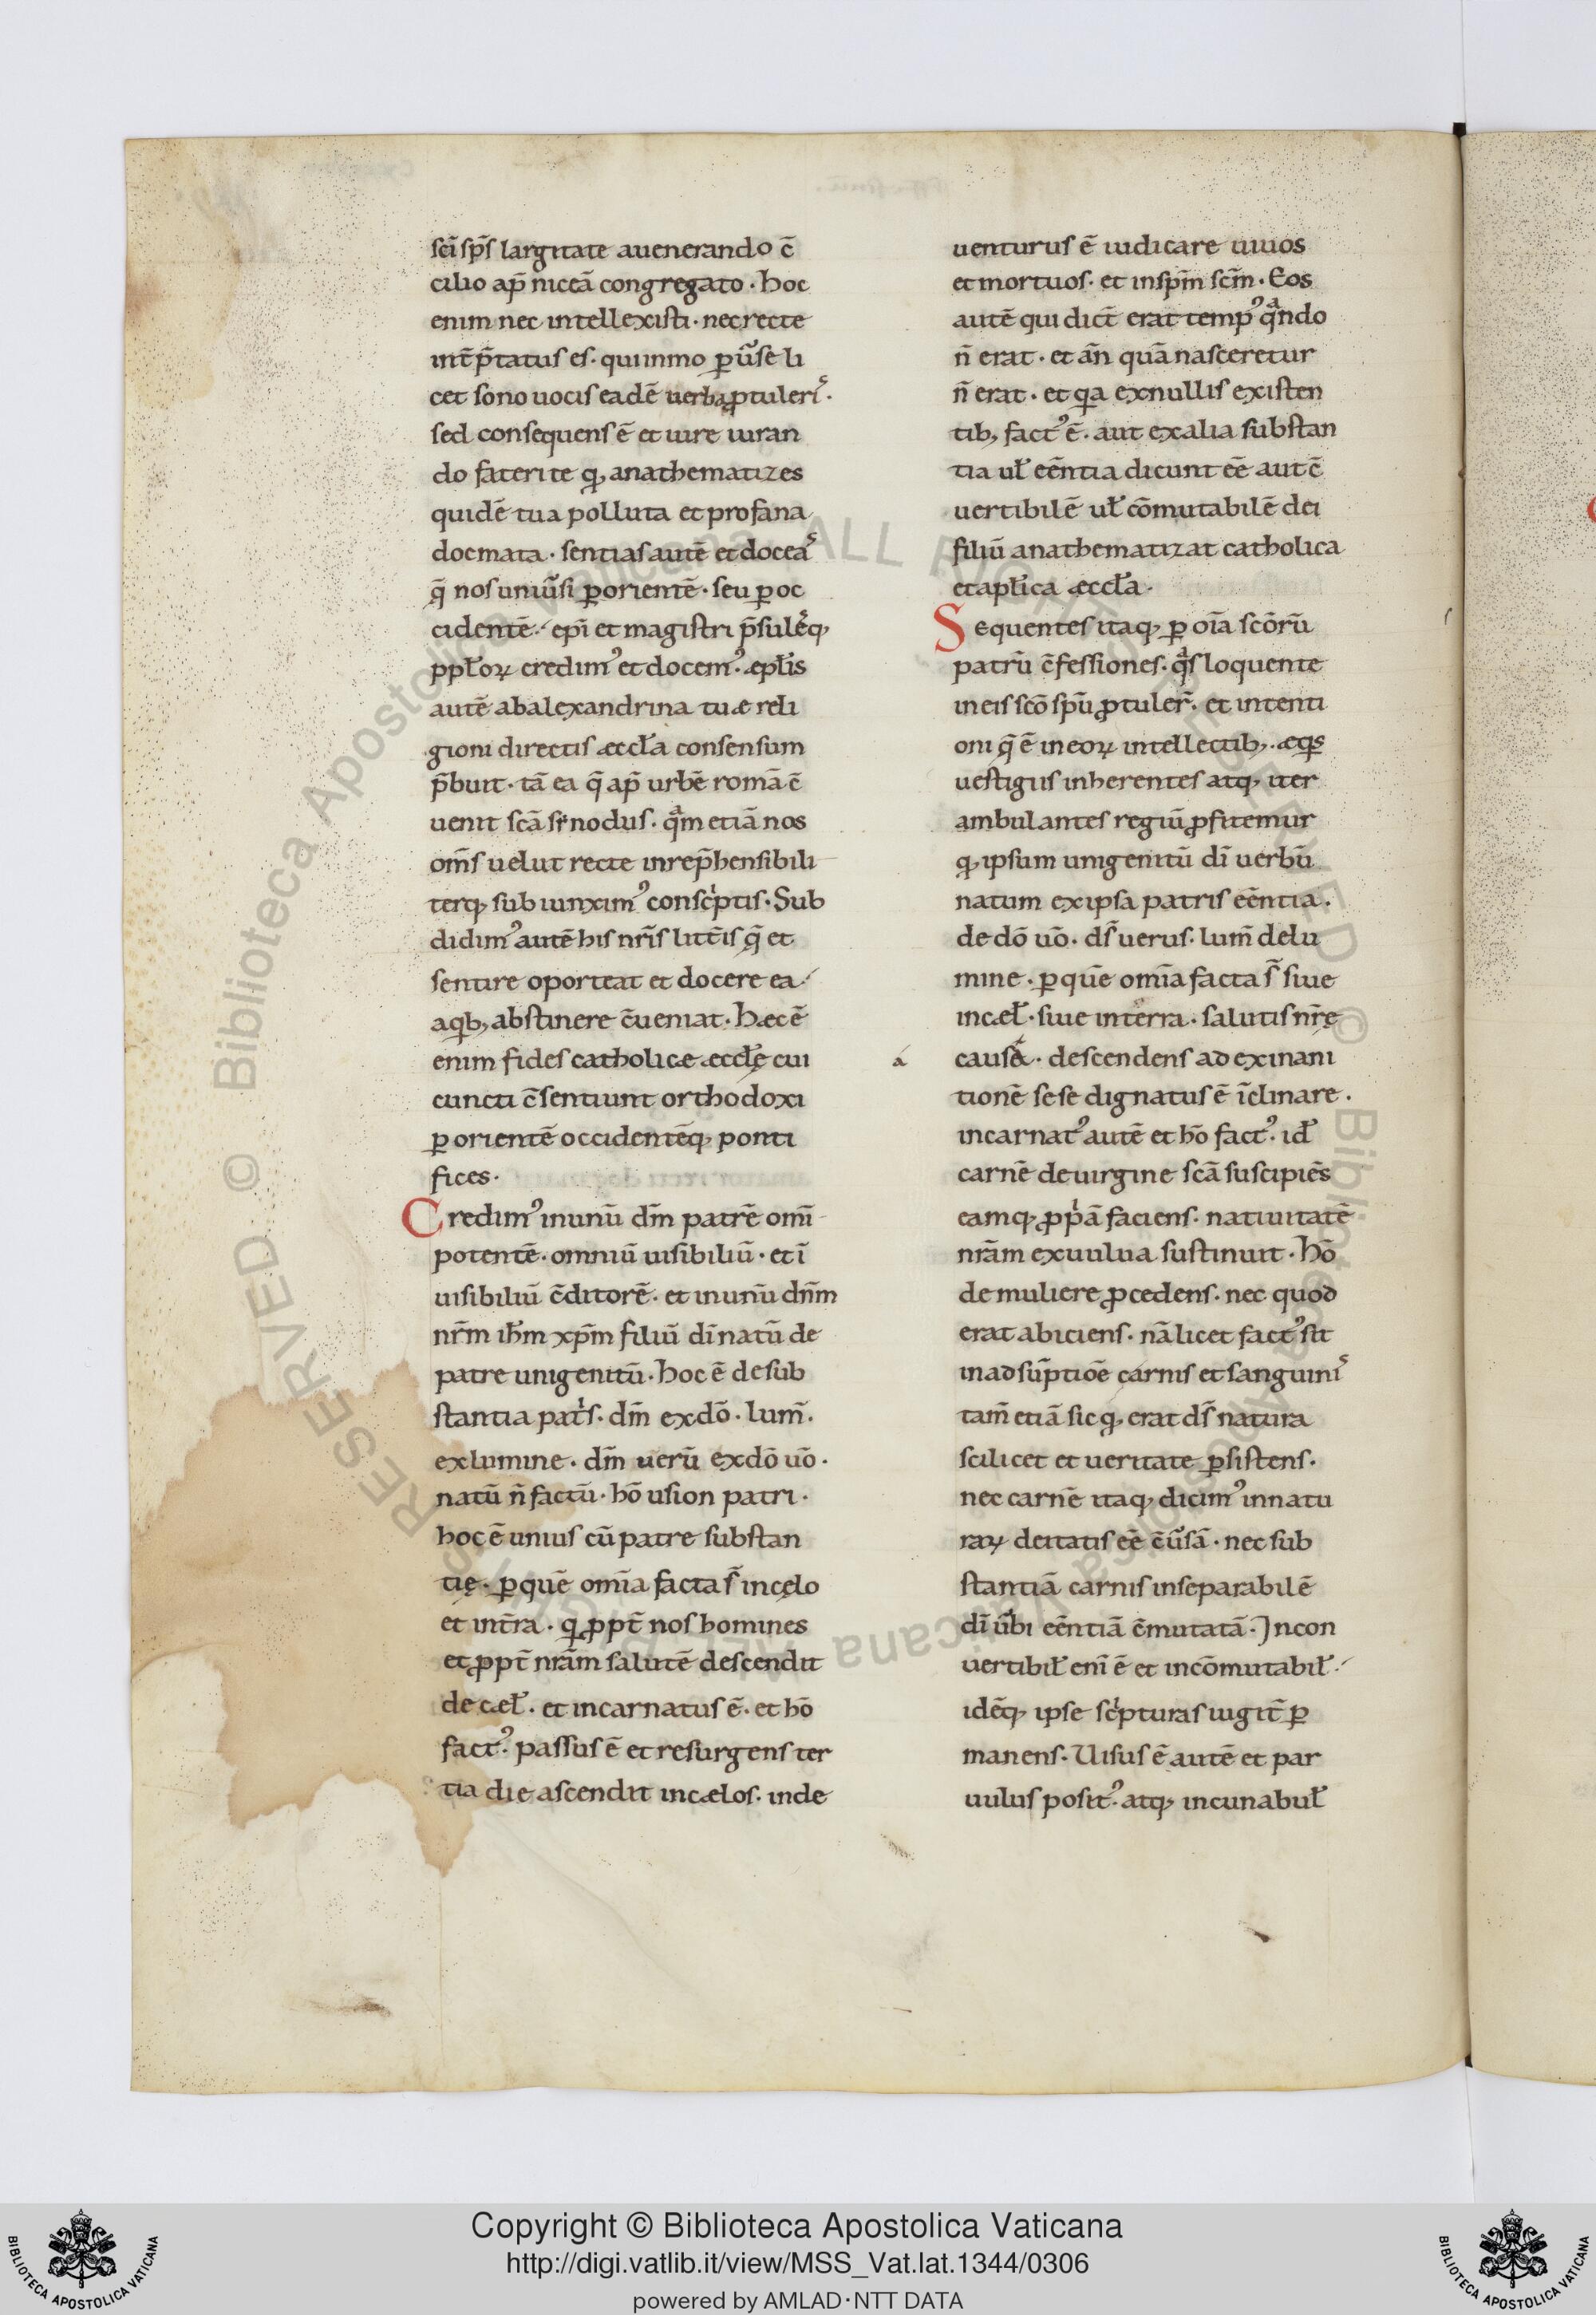 scī sp̄s largitate auenerando c̄
cilio ap̄ niceā congregato · hoc
enim nec intellexisti · nec recte
int̄p̄tatus es · quinmo ꝑūse li
cet sono uocis eadē uerba ꝓtuleris ·
sed consequens ē et iure iuran
do fateri te qꝫ anathematizes
quidē tua polluta et profana
docmata · sentias autē et doceas
q̄ nos uniūsi ꝑ orientē · seu ꝑ oc
cidentē · ep̄i et magistri p̄sulēqꝫ
ppl̄oꝝ credimꝰ et docemꝰ · æpl̄is
autē ab alexandrina tuæ reli
gioni directis æccl̄a consensum
p̄buit · tā ea q̄ ap̄ urbē romā c̄
uenit scā sinodus · qªm etiā nos
om̄s uelut recte inrep̄hensibili
terqꝫ subiunximꝰ conscⁱptis · Sub
didimꝰ autē his nr̄is litt̄is q̄ et
sentire oporteat et docere ea
a qꝫb abstinere c̄ueniat · Hæc ē
enim fides catholicæ æccl̄ę cui
cuncti c̄sentiunt orthodoxi
ꝑ orientē occidentēqꝫ ponti
fices ·
Credimꝰ in unū dm̄ patrē omī
potentē · omniū uisibiliū · et ī
uisibiliū c̄ditorē · et in unū dn̄m
nr̄m ih̄m xp̄m filiū dī natū de
patre unigenitū · hoc ē de sub
stantia patⁱs · dm̄ ex dō · lum̄ ·
ex lumine · dm̄ uerū ex dō uō ·
natū n̄ factū · hō usion patri ·
hoc ē unius cū patre substan
tię · ꝑ quē omīa facta s̄ in cęlo
et in t̄ra · qⁱ ꝓpt̄ nos homines
et ꝓpt̄ nr̄am salutē descendit
de cæl̄ · et incarnatus ē · et hō
factꝰ · passus ē et resurgens ter
tia die ascendit in cælos · inde
uenturus ē iudicare uiuos
et mortuos · et in sp̄m sc̄m · Eos
autē qui dicт̄ erat tempꝰ qªndo
n̄ erat · et ān quā nasceretur
n̄ erat · et qia ex nullis existen
tibꝫ factꝰ ē · aut ex alia substan
tia ul̄ eēntia dicunt eē aut c̄
uertibilē ul̄ cōmutabilē dei
filiū anathematizat catholica
et apl̄ica æccl̄a ·
Sequentes itaqꝫ ꝑ oīa scōrū
patrū c̄fessiones · qªs loquente
in eis scō spū ꝓtuler̄ · et intenti
oni q̄ ē in eoꝝ intellectibꝫ · æqꝫs
uestigiis inherentes atqꝫ iter
ambulantes regiū ꝓfitemur
qꝫ ipsum unigenitū dī uerbū
natum ex ipsa patris eēntia ·
de dō uō · ds̄ uerus · lum̄ de lu
mine · ꝑ quē omīa facta s̄ siue
in cæl̄ · siue in terra · salutis nr̄ę
a causa · descendens ad exinani
tionē sese dignatus ē īclinare ·
incarnatꝰ autē et hō factꝰ · id̄
carnē de uirgine scā suscipiēs
eamqꝫ ꝓpⁱā faciens · natiuitatē
nr̄am ex uulua sustinuit · Hō
de muliere ꝓcedens · nec quod
erat abiciens · nā licet factꝰ sit
in adsūptiōē carnis et sanguinis
tam̄ etiā sic qꝫ erat ds̄ natura
scilicet et ueritate ꝑsistens ·
nec carnē itaqꝫ dicimꝰ in natu
raꝝ deitatis eē c̄ūsā · nec sub
stantiā carnis inseparabilē
dī ūbi eēntiā c̄mutatā · Incon
uertibil̄ enī ē et incōmutabil̄
idēqꝫ ipse scⁱpturas iugit̄ ꝑ
manens · Uisus ē autē et par
uulus positꝰ · atqꝫ in cunabul̄
Copyright © Biblioteca Apostolica Vaticana
http://digi.vatlib.it/view/MSS_Vat.lat.1344/0306
powered by AMLAD·NTT DATA
BIBLIOTECA APOSTOLICA VATICANA
BIBLIOTECA APOSTOLICA VATICANA
© Biblioteca Apostolica Vaticana ALL RIGHTS RESERVED
© Biblioteca Apostolica Vaticana ALL RIGHTS RESERVED